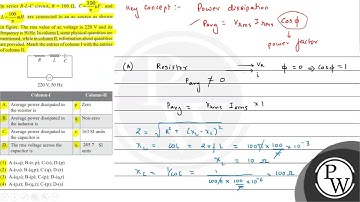 In series R-L-C circuit, R = 100 Ω, C = 100/π μF and
L = 100/π mH are connected to an ac source as shown
in figure. The rms value of ac voltage is 220 V and its
frequency is 50 Hz. In column I, some physical quantities are
mentioned, while in column II, information about quantities
are provided. Match the entries of column I with the entries
of column II.
R L C
220 V, 50 Hz
Column-I Column-II
A. Average power dissipated in the resistor is p. Zero
B. Average power dissipated in the inductor is q. Non-zero
C. Average power dissipated in the capacitor is r. 163 SI units
D. The rms voltage across the capacitor is s. 265.7 SI units
Key concept :- Power dissipation
Pavg = Vrms Irms Cosϕ
→ power factor
(A) Resistor → VR
→ i
ϕ = 0 ⇒ cosϕ = 1
Pavg ≠ 0
Pavg = Vrms Irms × 1
Z = √R² + (XL - XC)²
XL = ωL = 2πfL = 100π × 100/π × 10⁻³
XL = 10 Ω
= 100 Ω
PW